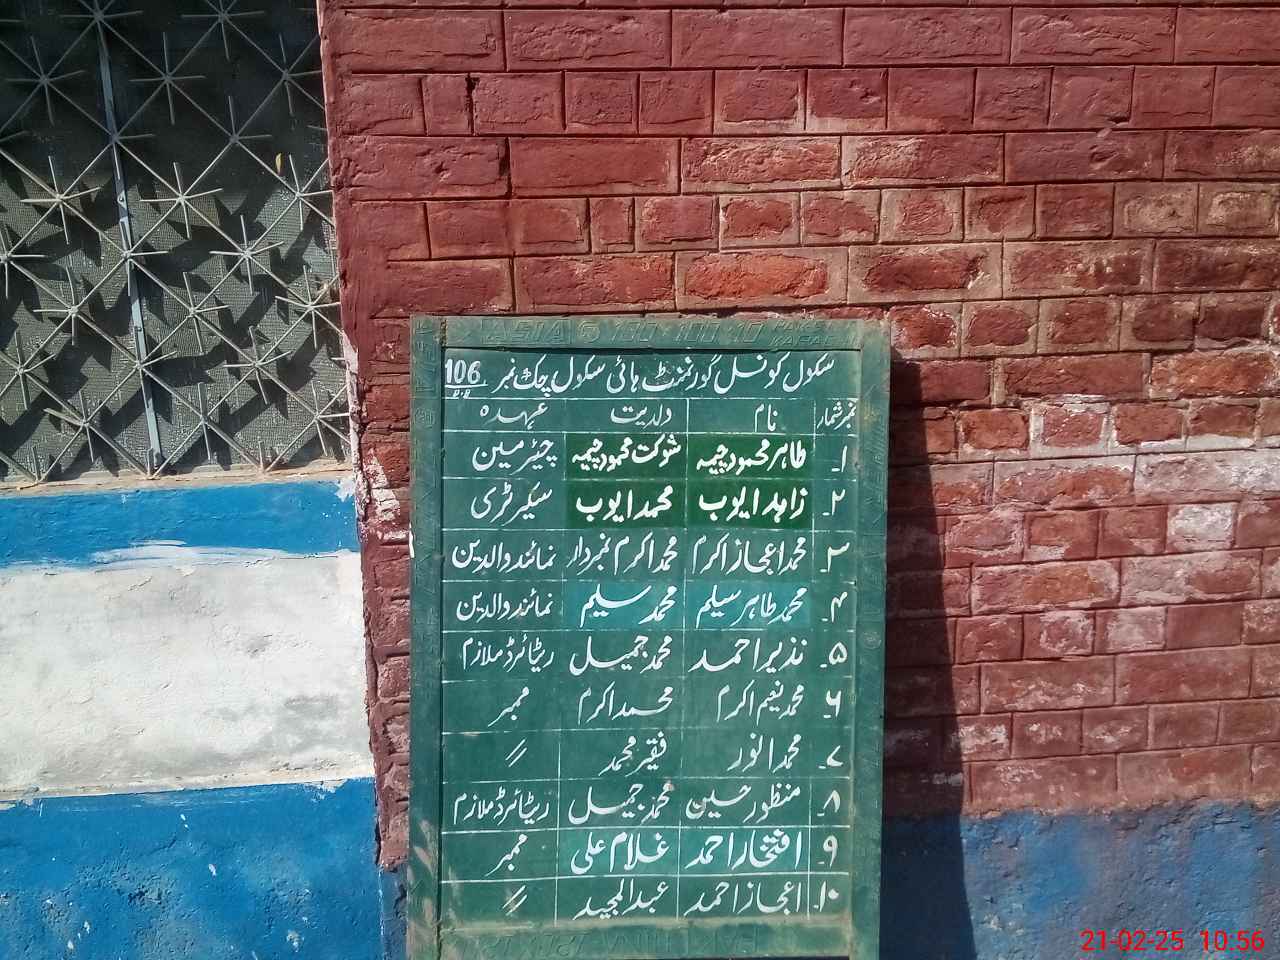 ASIA 6 100×100×10
سکول کونسل گورنمنٹ ہائی سکول چک نمبر 106 ج ب
نمبر شمار نام ولدیت عہدہ
۱۔ طاہر محمود چیمہ شوکت محمود چیمہ چیئرمین
۲۔ زاہد ایوب محمد ایوب سیکرٹری
۳۔ محمد اعجاز اکرم محمد اکرم نمبردار نمائند والدین
۴۔ محمد طاہر سیلم محمد سلیم نمائند والدین
۵۔ نذیر احمد محمد جمیل ریٹائرڈ ملازم
۶۔ محمد نعیم اکرم محمد اکرم ممبر
۷۔ محمد انور فقیر محمد //
۸۔ منظور حسین محمد جمیل ریٹائرڈ ملازم
۹۔ افتخار احمد غلام علی ممبر
۱۰۔ اعجاز احمد عبدالمجید //
21-02-25 10:56